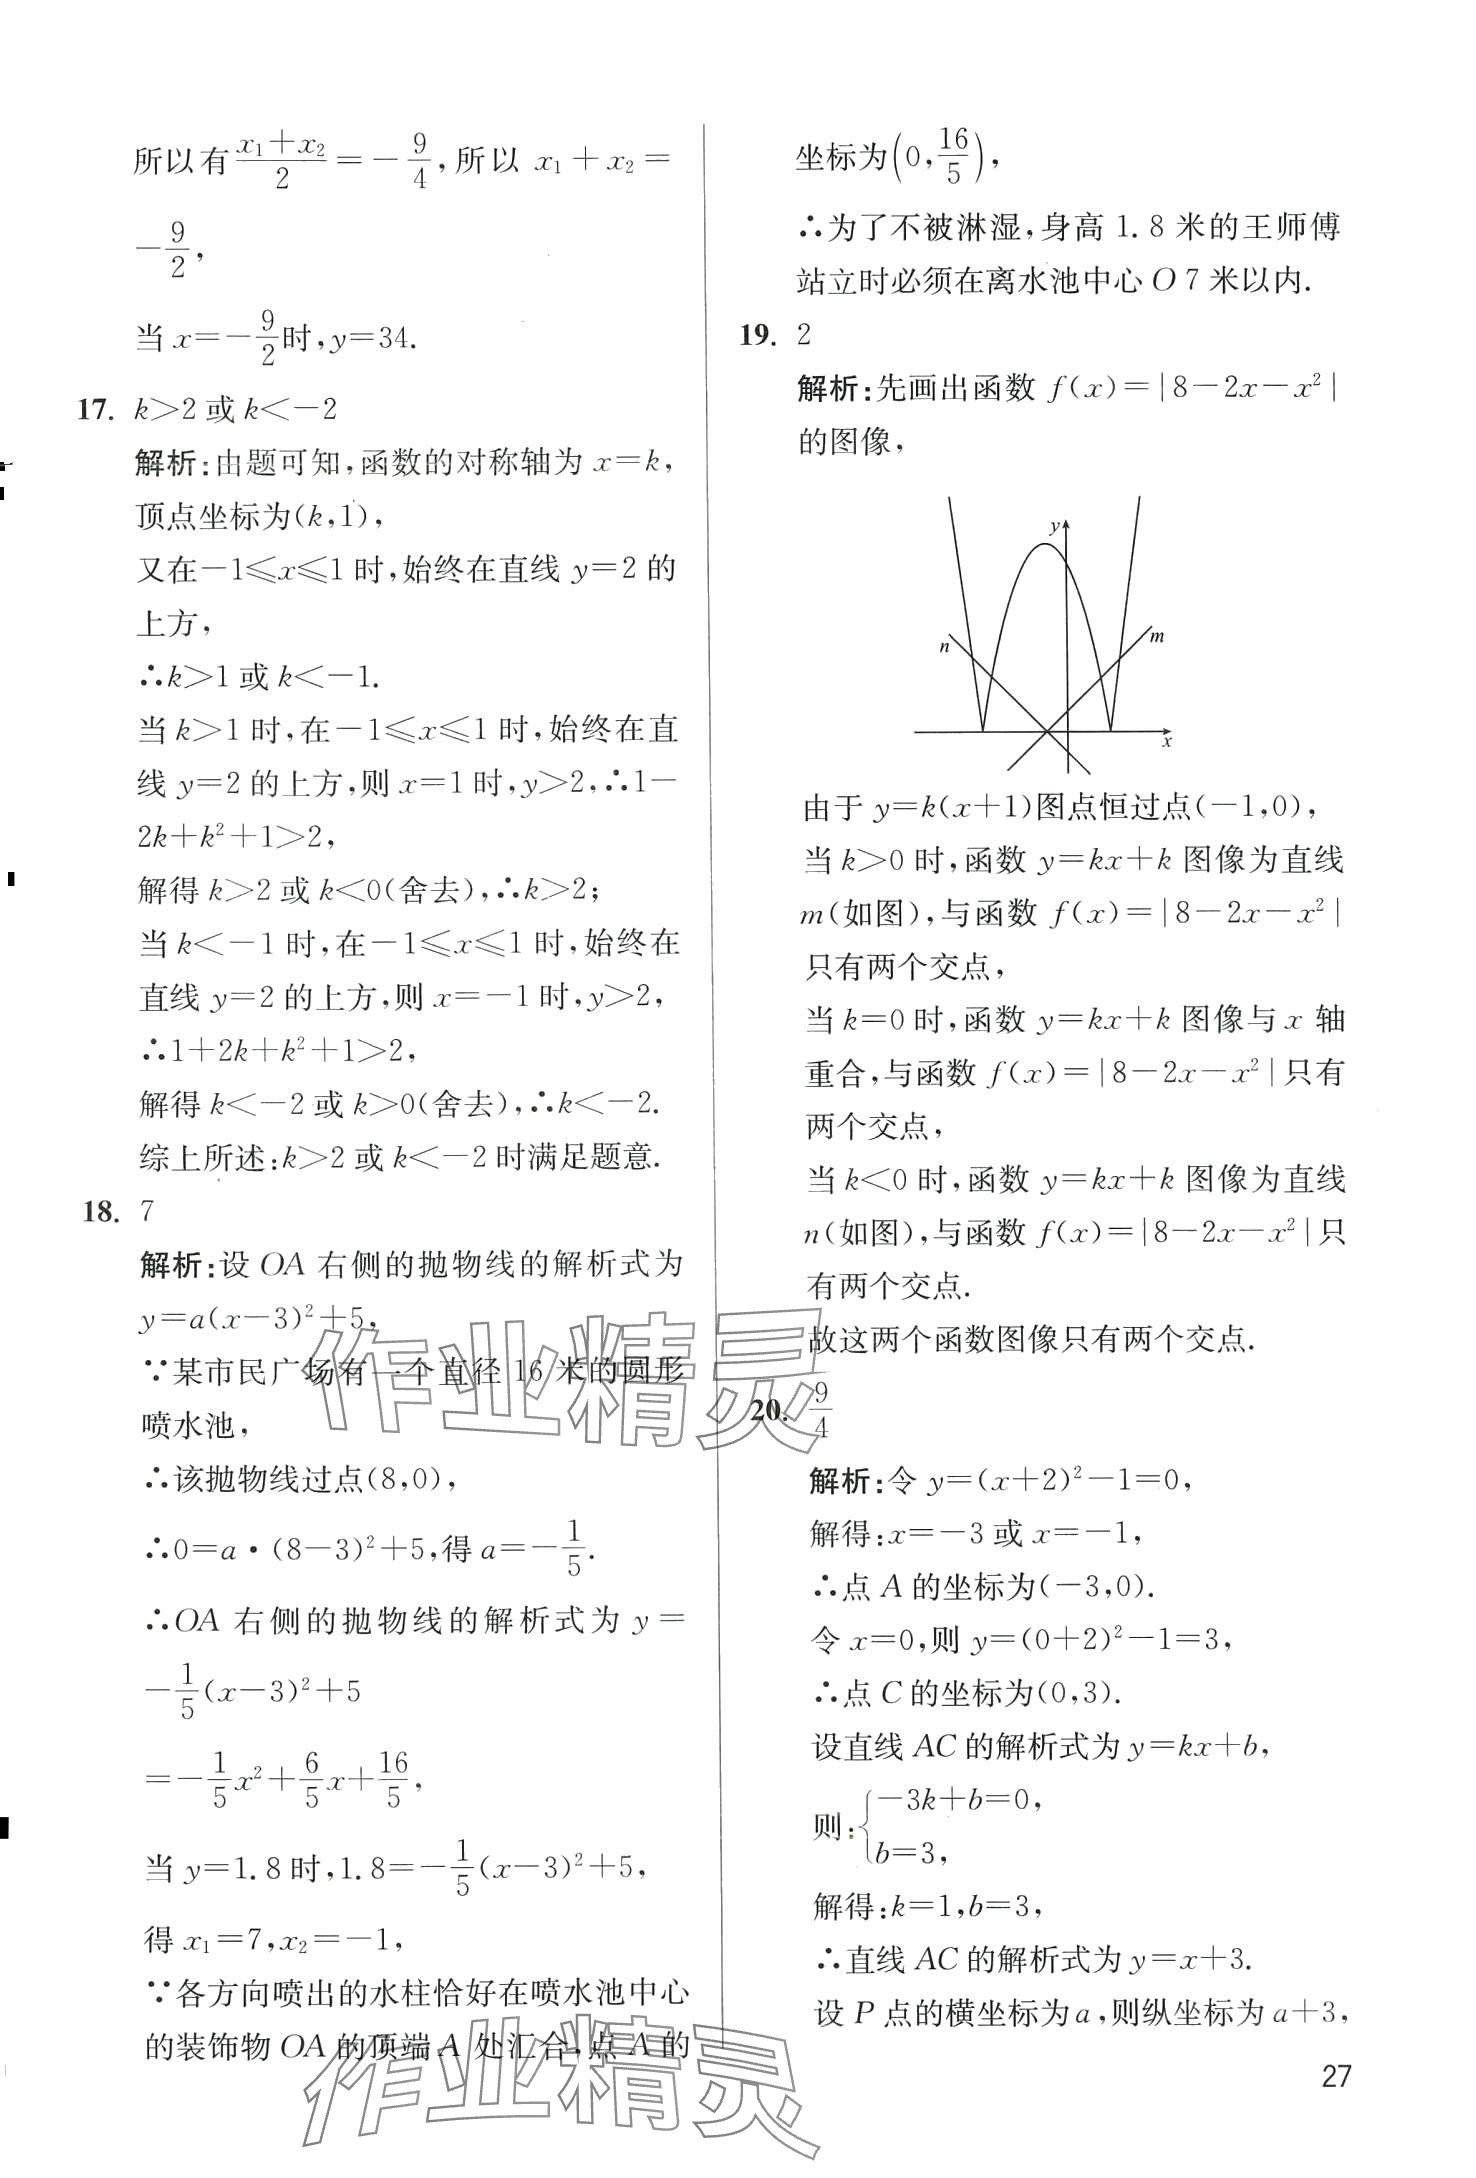 所以有 (x₁+x₂)/2 = −9/4, 所以 x₁+x₂=
−9/2,
当 x=−9/2时,y=34.
17. k>2 或 k<−2
解析:由题可知,函数的对称轴为 x=k,
顶点坐标为(k,1),
又在−1⩽x⩽1 时,始终在直线 y=2 的
上方,
∴k>1 或 k<−1.
当 k>1 时,在−1⩽x⩽1 时,始终在直
线 y=2 的上方,则 x=1 时,y>2,∴1−
2k+k²+1>2,
解得 k>2 或 k<0(舍去),∴k>2;
当 k<−1 时,在−1⩽x⩽1 时,始终在
直线 y=2 的上方,则 x=−1 时,y>2,
∴1+2k+k²+1>2,
解得 k<−2 或 k>0(舍去),∴k<−2.
综上所述:k>2 或 k<−2 时满足题意.
18. 7
解析:设 OA 右侧的抛物线的解析式为
y=a(x−3)²+5,
∵某市民广场有一个直径 16 米的圆形
喷水池,
∴该抛物线过点(8,0),
∴0=a·(8−3)²+5,得 a=−1/5.
∴OA 右侧的抛物线的解析式为 y=
−1/5(x−3)²+5
=−1/5x²+6/5x+16/5,
当 y=1.8 时,1.8=−1/5(x−3)²+5,
得 x₁=7,x₂=−1,
∵各方向喷出的水柱恰好在喷水池中心
的装饰物 OA 的顶端 A 处汇合,点 A 的
坐标为(0,16/5),
∴为了不被淋湿,身高 1.8 米的王师傅
站立时必须在离水池中心 O 7 米以内.
19. 2
解析:先画出函数 f(x)=|8−2x−x²|
的图像,
y
n
m
x
由于 y=k(x+1)图点恒过点(−1,0),
当 k>0 时,函数 y=kx+k 图像为直线
m(如图),与函数 f(x)=|8−2x−x²|
只有两个交点,
当 k=0 时,函数 y=kx+k 图像与 x 轴
重合,与函数 f(x)=|8−2x−x²|只有
两个交点,
当 k<0 时,函数 y=kx+k 图像为直线
n(如图),与函数 f(x)=|8−2x−x²|只
有两个交点.
故这两个函数图像只有两个交点.
20. 9/4
解析:令 y=(x+2)²−1=0,
解得:x=−3 或 x=−1,
∴点 A 的坐标为(−3,0).
令 x=0,则 y=(0+2)²−1=3,
∴点 C 的坐标为(0,3).
设直线 AC 的解析式为 y=kx+b,
则:{−3k+b=0,
b=3,
解得:k=1,b=3,
∴直线 AC 的解析式为 y=x+3.
设 P 点的横坐标为 a,则纵坐标为 a+3,
27
作业精灵
作业精灵